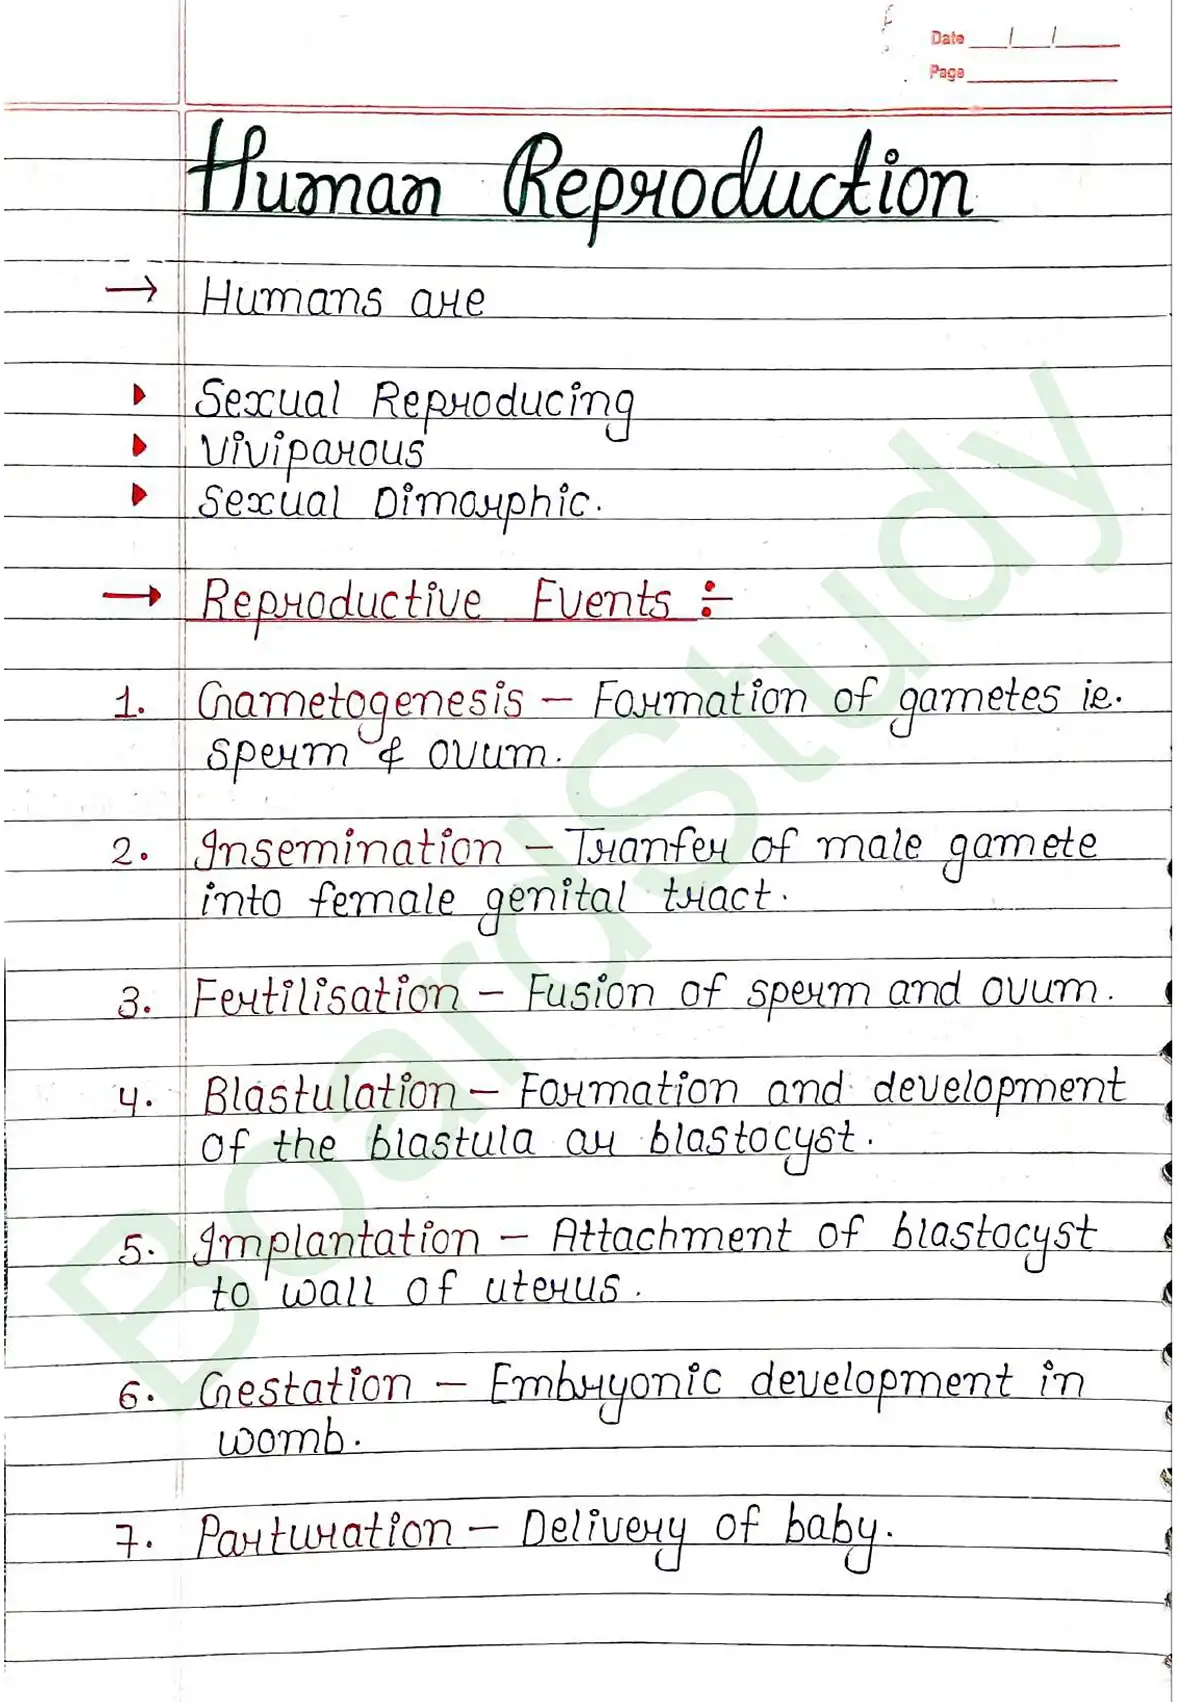 Date / /
Page
Human Reproduction
→ Humans are
Sexual Reproducing
Viviparous
Sexual Dimorphic.
→ Reproductive Events ÷
1. Gametogenesis – Formation of gametes ie.
sperm & ovum.
2. Insemination – Tranfer of male gamete
into female genital tract.
3. Fertilisation – Fusion of sperm and ovum.
4. Blastulation – Formation and development
of the blastula or blastocyst.
5. Implantation – Attachment of blastocyst
to wall of uterus.
6. Gestation – Embryonic development in
womb.
7. Parturation – Delivery of baby.
BoardStudy